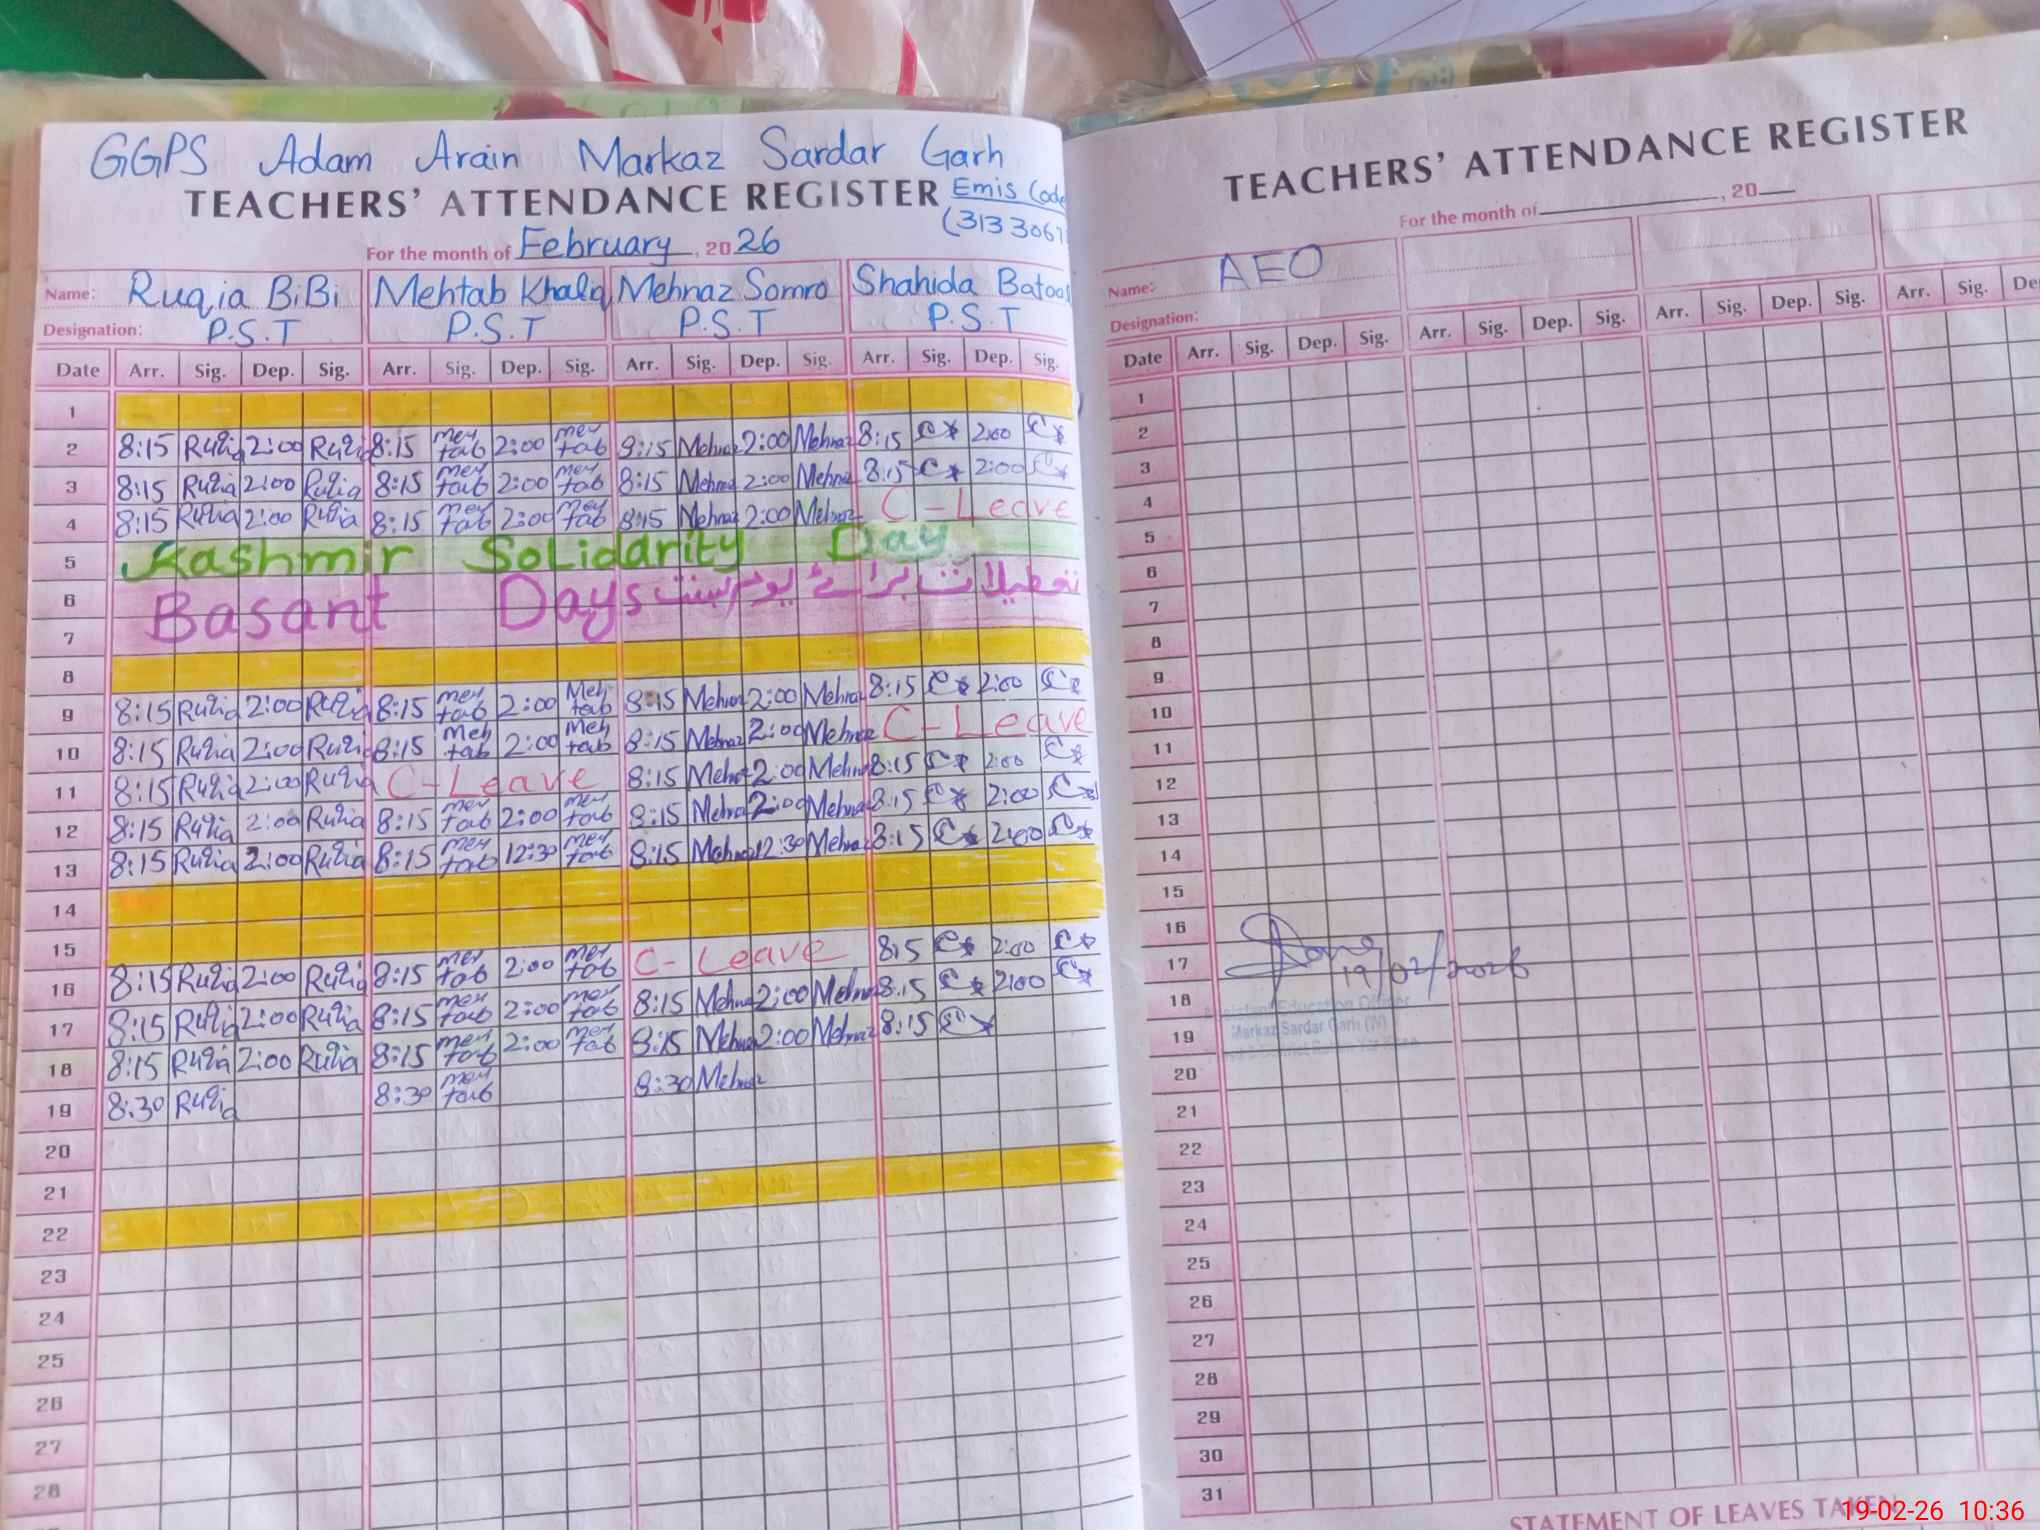 GGPS Adam Arain Markaz Sardar Garh
TEACHERS' ATTENDANCE REGISTER Emis Code
(3133067
For the month of February, 2026
Name: Ruqia BiBi Mehtab Khaliq Mehnaz Somro Shahida Batool
Designation: P.S.T P.S.T P.S.T P.S.T
Date Arr. Sig. Dep. Sig. Arr. Sig. Dep. Sig. Arr. Sig. Dep. Sig. Arr. Sig. Dep. Sig.
1
2 8:15 Ruqia 2:00 Ruqia 8:15 Mehtab 2:00 Mehtab 8:15 Mehnaz 2:00 Mehnaz 8:15 2:00
3 8:15 Ruqia 2:00 Ruqia 8:15 Mehtab 2:00 Mehtab 8:15 Mehnaz 2:00 Mehnaz 8:15 2:00
4 8:15 Ruqia 2:00 Ruqia 8:15 Mehtab 2:00 Mehtab 8:15 Mehnaz 2:00 Mehnaz C-Leave
5 Kashmir Solidarity Day
6 Basant Days تعطیلات برائے یوم بسنت
7
8
9 8:15 Ruqia 2:00 Ruqia 8:15 Mehtab 2:00 Mehtab 8:15 Mehnaz 2:00 Mehnaz 8:15 2:00
10 8:15 Ruqia 2:00 Ruqia 8:15 Mehtab 2:00 Mehtab 8:15 Mehnaz 2:00 Mehnaz C-Leave
11 8:15 Ruqia 2:00 Ruqia C-Leave 8:15 Mehnaz 2:00 Mehnaz 8:15 2:00
12 8:15 Ruqia 2:00 Ruqia 8:15 Mehtab 2:00 Mehtab 8:15 Mehnaz 2:00 Mehnaz 8:15 2:00
13 8:15 Ruqia 2:00 Ruqia 8:15 Mehtab 12:30 Mehtab 8:15 Mehnaz 12:30 Mehnaz 8:15 2:00
14
15
16 8:15 Ruqia 2:00 Ruqia 8:15 Mehtab 2:00 Mehtab C-Leave 8:15 2:00
17 8:15 Ruqia 2:00 Ruqia 8:15 Mehtab 2:00 Mehtab 8:15 Mehnaz 2:00 Mehnaz 8:15 2:00
18 8:15 Ruqia 2:00 Ruqia 8:15 Mehtab 2:00 Mehtab 8:15 Mehnaz 2:00 Mehnaz 8:15
19 8:30 Ruqia 8:30 Mehtab 8:30 Mehnaz
20
21
22
23
24
25
26
27
28
TEACHERS' ATTENDANCE REGISTER
For the month of , 20
Name: AEO
Designation:
Date Arr. Sig. Dep. Sig. Arr. Sig. Dep. Sig. Arr. Sig. Dep. Sig. Arr. Sig. De
1
2
3
4
5
6
7
8
9
10
11
12
13
14
15
16
17 19/02/2026
18 Assistant Education Officer
19 Markaz Sardar Garh (W)
20
21
22
23
24
25
26
27
28
29
30
31
STATEMENT OF LEAVES TAKEN
19-02-26 10:36